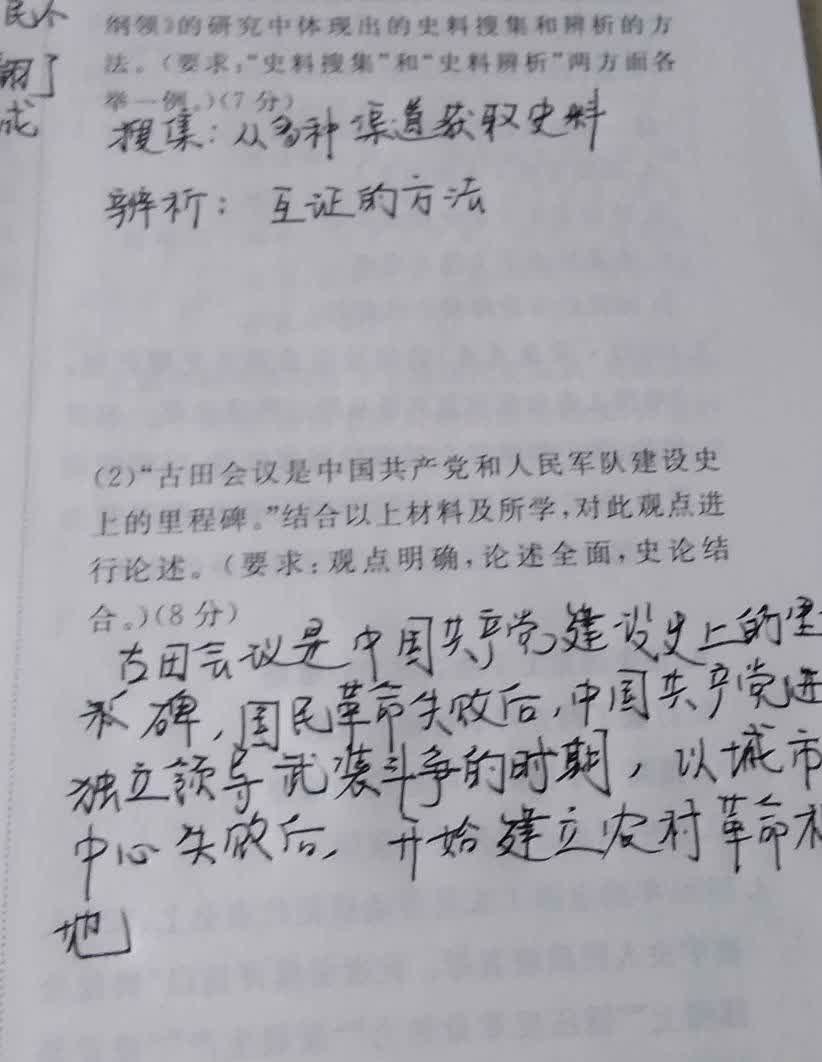 民个
纲领》的研究中体现出的史料搜集和辨析的方
法。(要求:“史料搜集”和“史料辨析”两方面各
成
举一例。)(7分)
搜集:从多种渠道获取史料
辨析:互证的方法
(2)“古田会议是中国共产党和人民军队建设史
上的里程碑。”结合以上材料及所学,对此观点进
行论述。(要求:观点明确,论述全面,史论结
合。)(8分)
古田会议是中国共产党建设史上的里
碑,国民革命失败后,中国共产党进
独立领导武装斗争的时期,以城市
中心失败后,开始建立农村革命
地